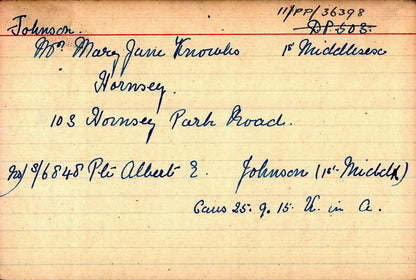 11/PP/36398
Johnson. D P 503.
Mrs Mary Jane Knowles 1st Middlesex
Hornsey.
103 Hornsey Park Road.
S/6848 Pte Albert E. Johnson (1st Middx)
Caus 25. 9. 15. K. in A.